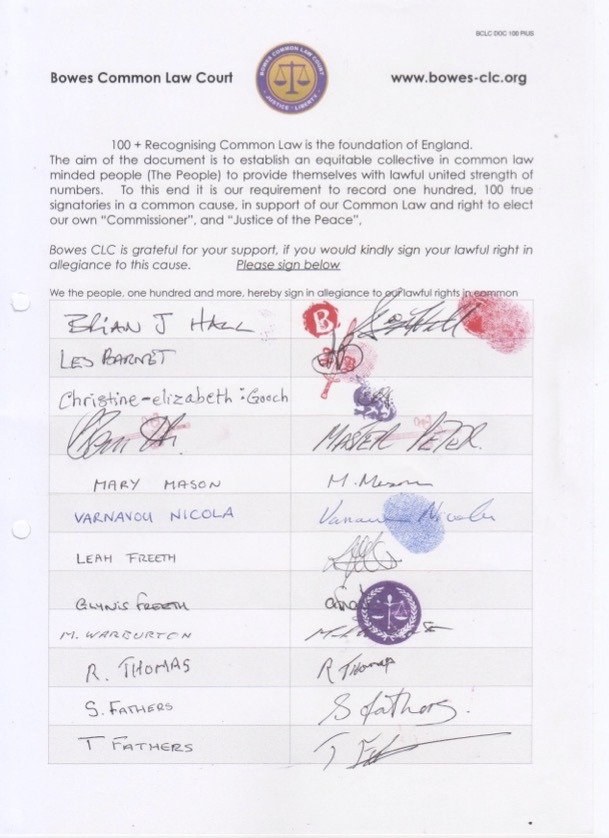 BCLC DOC 100 PlUS
Bowes Common Law Court
BOWES COMMON LAW COURT
· JUSTICE · LIBERTY ·
www.bowes-clc.org
100 + Recognising Common Law is the foundation of England.
The aim of the document is to establish an equitable collective in common law
minded people (The People) to provide themselves with lawful united strength of
numbers. To this end it is our requirement to record one hundred, 100 true
signatories in a common cause, in support of our Common Law and right to elect
our own “Commissioner”, and “Justice of the Peace”,
Bowes CLC is grateful for your support, if you would kindly sign your lawful right in
allegiance to this cause. Please sign below
We the people, one hundred and more, hereby sign in allegiance to our lawful rights in common
BRIAN J HALL B
LES BARNET
Christine-elizabeth:Gooch
MASTER PETER.
MARY MASON M. Mason
VARNAVOU NICOLA Varnavou Nicola
LEAH FREETH
GLYNIS FREETH
M. WARBURTON
R. THOMAS R Thomas
S. FATHERS S fathers.
T FATHERS